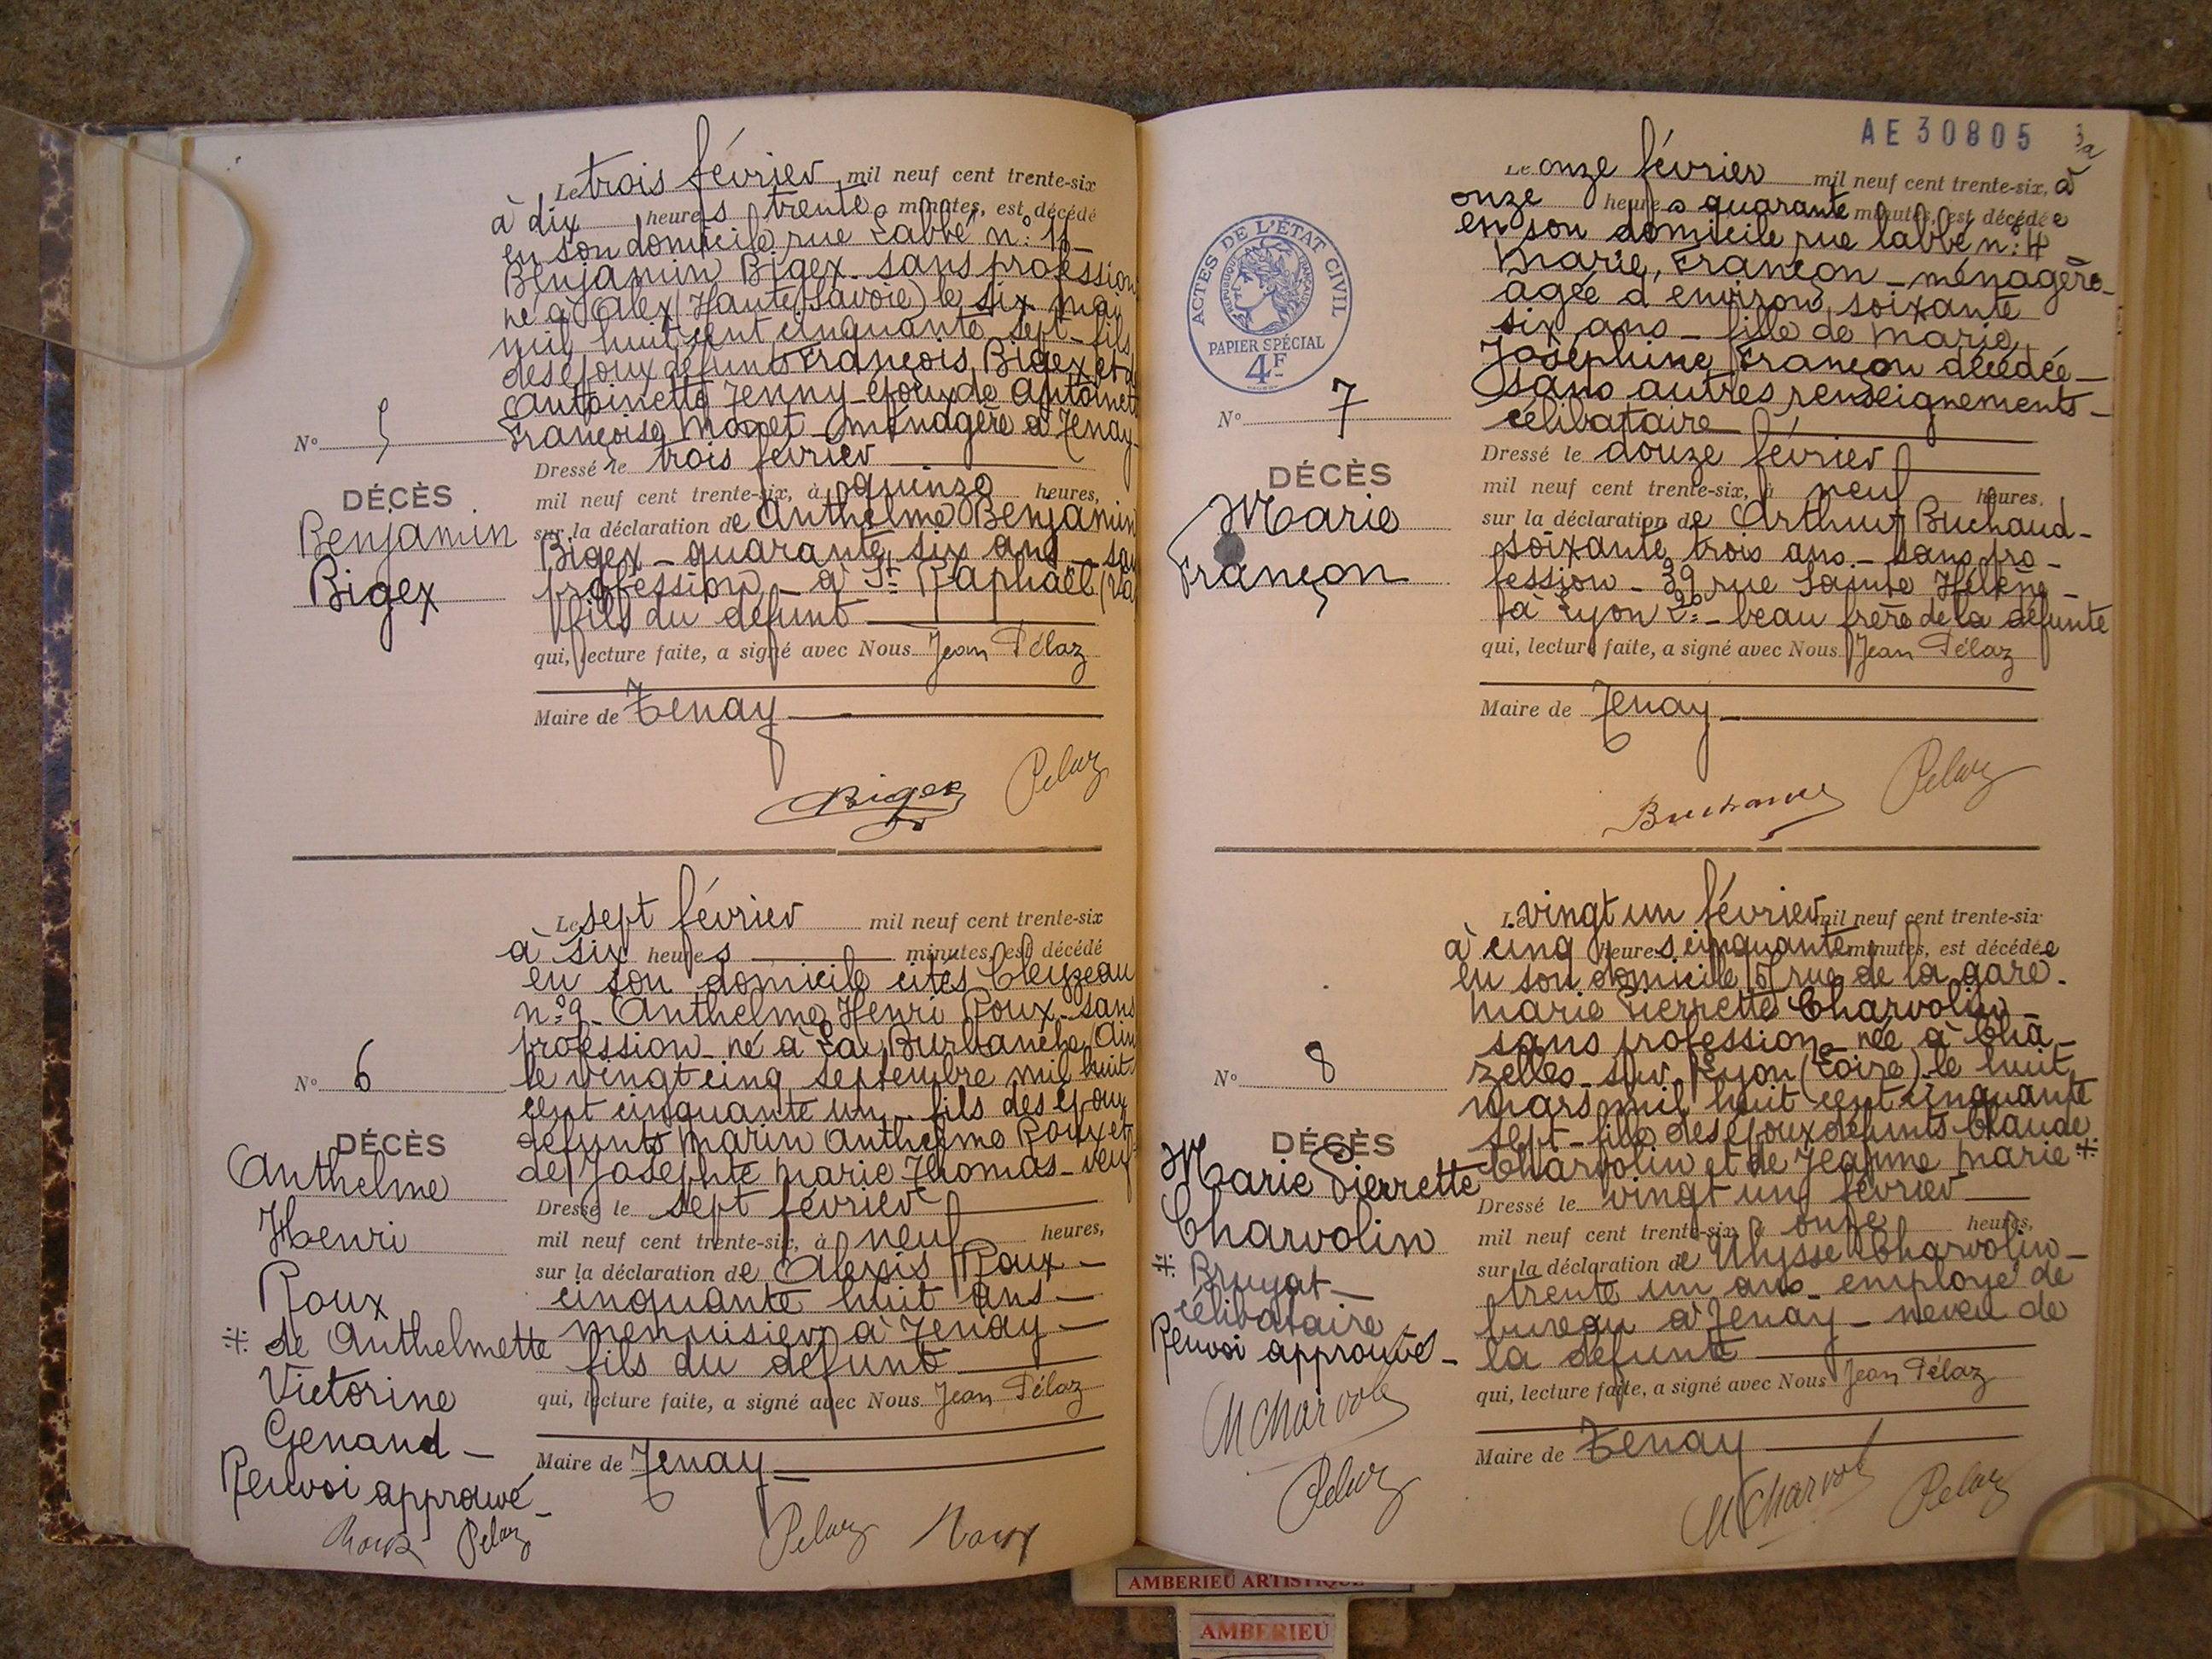 Le trois février mil neuf cent trente-six
à dix heures trente minutes, est décédé
en son domicile rue Labbé n°
Benjamin Bigex _ sans profession
né à Alex (Haute Savoie) le six mai
mil huit cent cinquante sept _ fils
des époux défunts François Bigex et d
Antoinette Jenny _ époux de Antoinett
Françoise _ ménagère à Tenay
N° 5
Dressé le trois février
DÉCÈS
Benjamin
Bigex
mil neuf cent trente-six, à quinze heures,
sur la déclaration de Anthelme Benjamin
Bigex _ quarante six ans _ san
profession _ à St Raphaël (Va
fils du défunt
qui, lecture faite, a signé avec Nous Jean Pélaz
Maire de Tenay
Bigex Pelaz
Le sept février mil neuf cent trente-six
à six heures minutes, est décédé
en son domicile cités Cleyzeau
n° 9 _ Anthelme Henri Roux _ sans
profession _ né à La Burbanche (Ain
le vingt cinq septembre mil huit
cent cinquante un _ fils des époux
défunts Marin Anthelme Roux et
de Josephte Marie Thomas _ veuf
N° 6
DÉCÈS
Anthelme
Henri
Roux
⁜ de Anthelmette
Victorine
Genaud _
Renvoi approuvé _
Roux Pelaz
Dressé le sept février
mil neuf cent trente-six, à neuf heures,
sur la déclaration de Alexis Roux _
cinquante huit ans _
menuisier à Tenay _
fils du défunt
qui, lecture faite, a signé avec Nous Jean Pélaz
Maire de Tenay
Pelaz Roux
AE 30805
Le onze février mil neuf cent trente-six, à
onze heures quarante minutes, est décédée
en son domicile rue labbé n° 4
Marie, Françon _ ménagère _
agée d'environ soixante
six ans _ fille de Marie
Joséphine Françon décédée _
sans autres renseignements _
célibataire
ACTES DE L'ÉTAT CIVIL
RÉPUBLIQUE FRANÇAISE
PAPIER SPÉCIAL
4F
N° 7
DÉCÈS
Marie
Françon
Dressé le douze février
mil neuf cent trente-six, à neuf heures,
sur la déclaration de Arthur Buchaud _
soixante trois ans _ sans pro _
fession _ 39 rue Sainte Hélène _
à Lyon 2° _ beau frère de la défunte
qui, lecture faite, a signé avec Nous Jean Pélaz
Maire de Tenay
Pelaz
Le vingt un février mil neuf cent trente-six
à cinq heures cinquante minutes, est décédée
en son domicile rue de la gare _
Marie Pierrette Charvolin _
sans profession _ née à Cha _
zelles _ sur Lyon (Loire) le huit
mars mil huit cent cinquante
sept _ fille des époux défunts Claude
Charvolin et de Jeanne Marie ⁜
N° 8
DÉCÈS
Marie Pierrette
Charvolin
⁜ Bruyat _
célibataire
Renvoi approuvé _
M Charvol
Pelaz
Dressé le vingt un février
mil neuf cent trente-six, à onze heures,
sur la déclaration de Ulysse Charvolin _
trente un ans _ employé de
bureau à Tenay _ neveu de
la défunte
qui, lecture faite, a signé avec Nous Jean Pélaz
Maire de Tenay
M Charvol Pelaz
AMBERIEU ARTISTIQUE
AMBERIEU